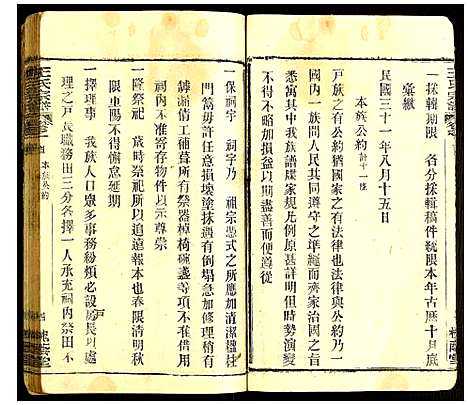 一採輯期限　各分採輯稿件統限本年古曆十月底
彙繳
民國三十一年八月十五日
本族公約 計十一條
戶族之有公約也猶國家之有法律也法律與公約乃一
國內一族間人民共同遵守之準繩而齊家治國之工具
悉寓其中我族譜牒家規凡例原甚詳明但時勢演變
不得不略加損益以期盡善而便遵守
一保祠宇　祠宇乃　祖宗憑式之所應加清潔楹柱
門窗毋許任意損壞塗抹遇有倒塌急加修理稍有
罅漏倩工補葺所有祭器棹椅碗盞等項不准借用
祠內不准寄存物件以示尊崇
一隆祭祀　歲時祭祀所以追遠報本也春限清明秋
限重陽不得懈怠延期
一擇理事　我族人口眾多事務紛頪必設房長以處
理之戶長職務田三分各擇一人承充祠內祭田不
王氏宗譜
卷之首
本族公約